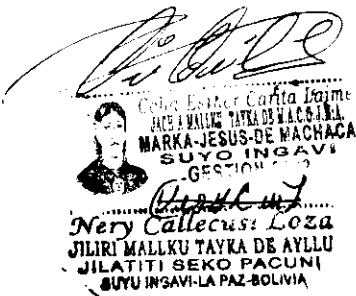 Carita
MALLKU TAYKA DE M.A.C.O.J.M.A.
MARKA-JESUS-DE MACHACA
SUYO INGAVI
-GESTION
Nery Callecusi Loza
JILIRI MALLKU TAYKA DE AYLLU
JILATITI SEKO PACUNI
SUYU INGAVI-LA PAZ-BOLIVIA